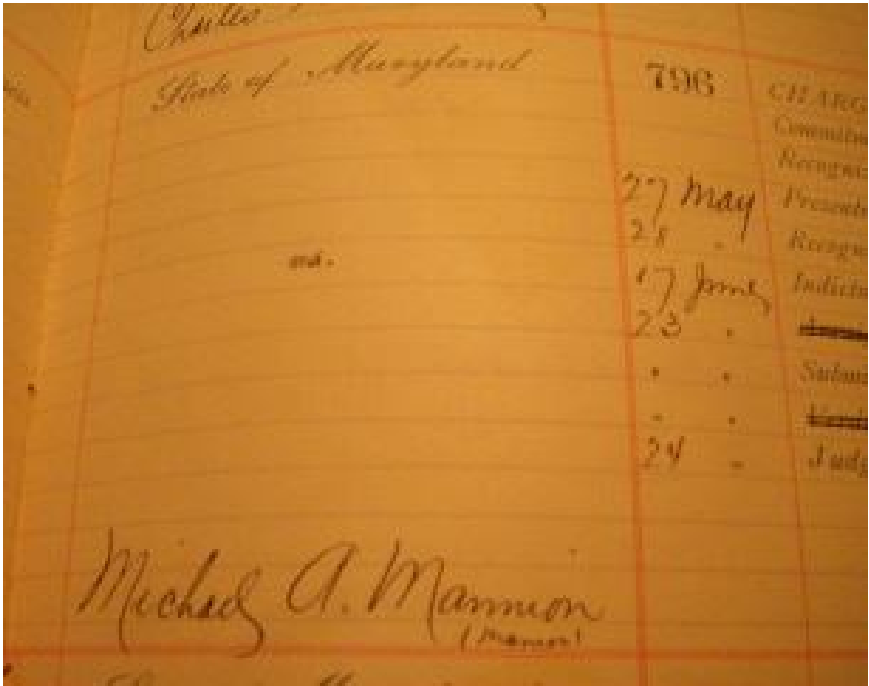 Charles
State of Maryland
796
CHARG
Commitm
Recogniz
27 May Presentm
28 " Recogni
vs.
17 June Indictm
23 "
" " Submi
" "
24 " Judg
Michael A. Mannion
(Manion)